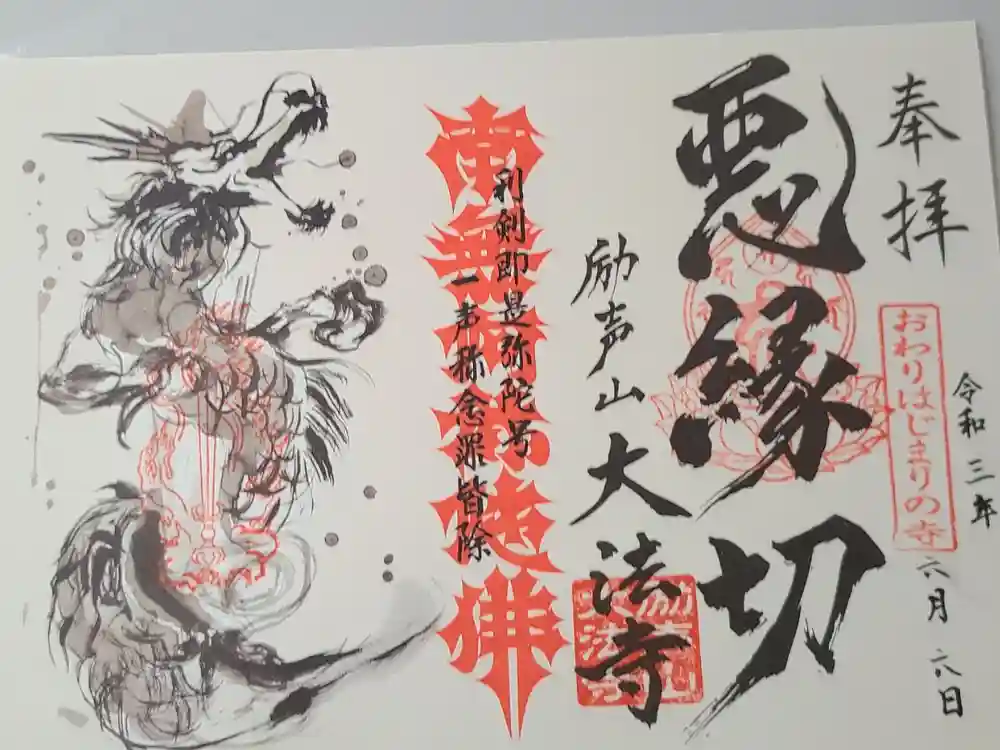 奉拝
令和三年六月六日
おわりはじまりの寺
悪縁切
励声山大法寺
利剣即是弥陀号
一声称念罪皆除
南無阿弥陀佛